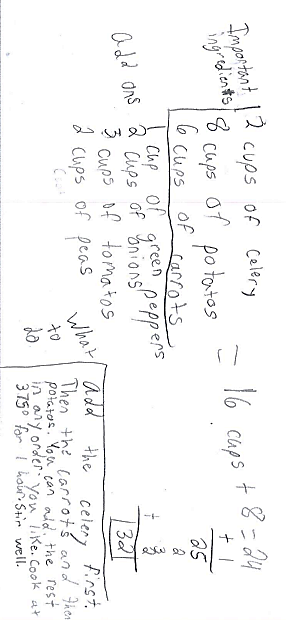 Important ingredients
2 cups of celery
8 cups of potatos
6 cups of carrots
= 16 cups + 8 = 24
+ 1
25
2
+ 3
2
32
add ons
1 cup of green peppers
2 cups of onions
3 cups of tomatos
2 cups of peas
What to do
add the celery first.
Then the carrots and then
potatos. You can add the rest
in any order you like. Cook at
375° for 1 hour. Stir well.